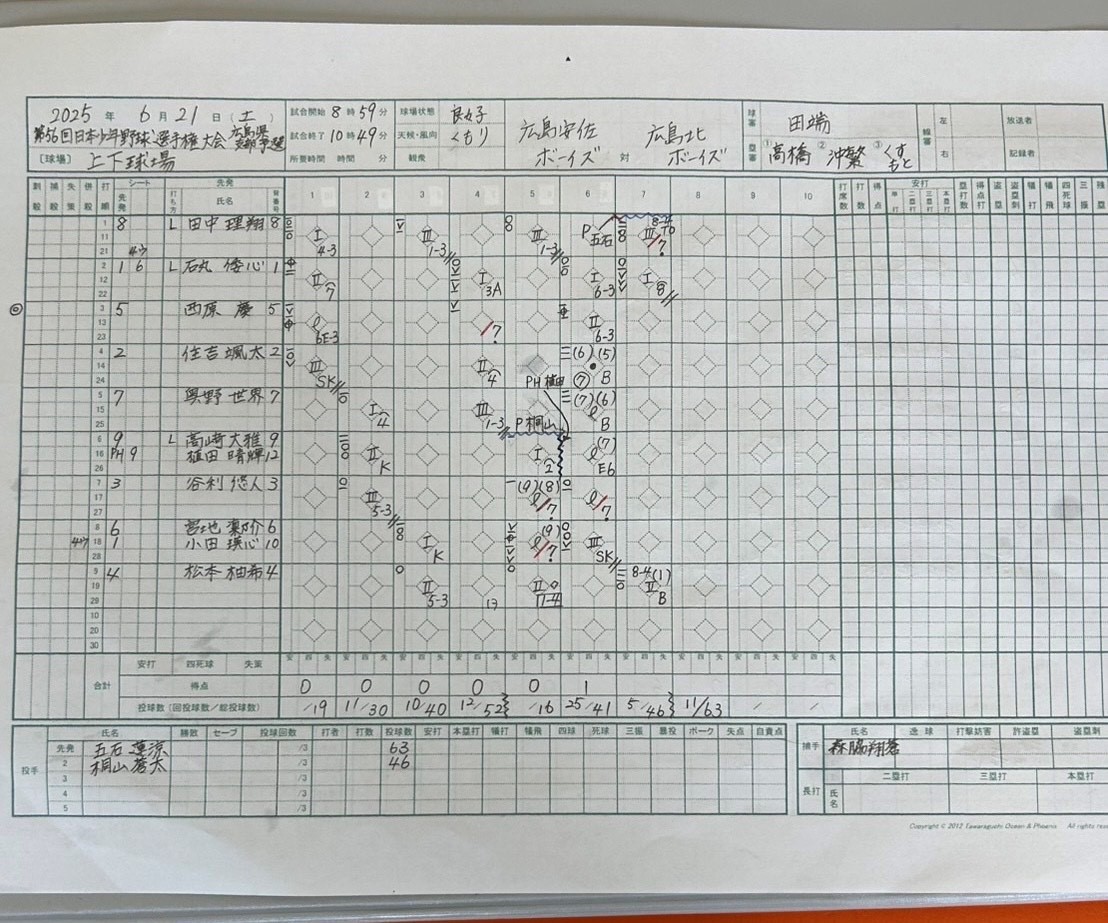 2025 年 6 月 21 日 (土)
第56回日本少年野球選手権大会 広島県支部予選
〔球場〕 上下球場
試合開始 8 時 59 分
試合終了 10 時 49 分
所要時間 時間 分
球場状態 良好
天候・風向 くもり
観衆
広島安佐ボーイズ 対 広島北ボーイズ
球審 田端
塁審 ① 高橋 ② 沖繁 ③ くすもと
線審 左 右
放送者
記録者
刺殺 捕殺 失策 併殺 打順 シート 先発 打ち方 先発 氏名 背番号 1 2 3 4 5 6 7 8 9 10 打席数 打数 得点 安打 単打 二塁打 三塁打 本塁打 塁打数 得点打 盗塁 盗塁刺 犠打 犠飛 四死球 三振 残塁
1 11 21 8 L 田中 理翔 8
2 12 22 1 6 L 石丸 倭心 1
3 13 23 5 西原 慶 5
4 14 24 2 住吉 颯太 2
5 15 25 7 奥野 世界 7
6 16 26 9 L 高崎 大雅 9
PH 9 植田 晴輝 12
7 17 27 3 谷利 悠人 3
8 18 28 6 宮地 6
1 小田 瑛心 10
9 19 29 4 松本 柚希 4
10 20 30
4-3 1-3 1-3 P 五石 8-4
7 3A 6-3 8
6E-3 6-3
SK 4 (6) (5) ⑦ B
PH 植田
4 1-3 P 桐山 (7) (6) B
K 2 (7) E6
5-3 (9) (8)
K (9) SK
5-3 13 7-4 8-4 (1) B
安打 四死球 失策
合計 得点 0 0 0 0 0 1
投球数 (回投球数／総投球数) /19 11/30 10/40 12/52 /16 25/41 5/46 11/63 / /
氏名 勝敗 セーブ 投球回数 打者 打数 投球数 安打 本塁打 犠打 犠飛 四球 死球 三振 暴投 ボーク 失点 自責点
投手
先発 五石 蓮涼 /3 63
2 桐山 蒼太 /3 46
3 /3
4 /3
5 /3
氏名 逸球 打撃妨害 許盗塁 盗塁刺
捕手 森脇翔蒼
二塁打 三塁打 本塁打
長打 氏名
Copyright © 2012 Tawaraguchi Ocean & Phoenix All rights